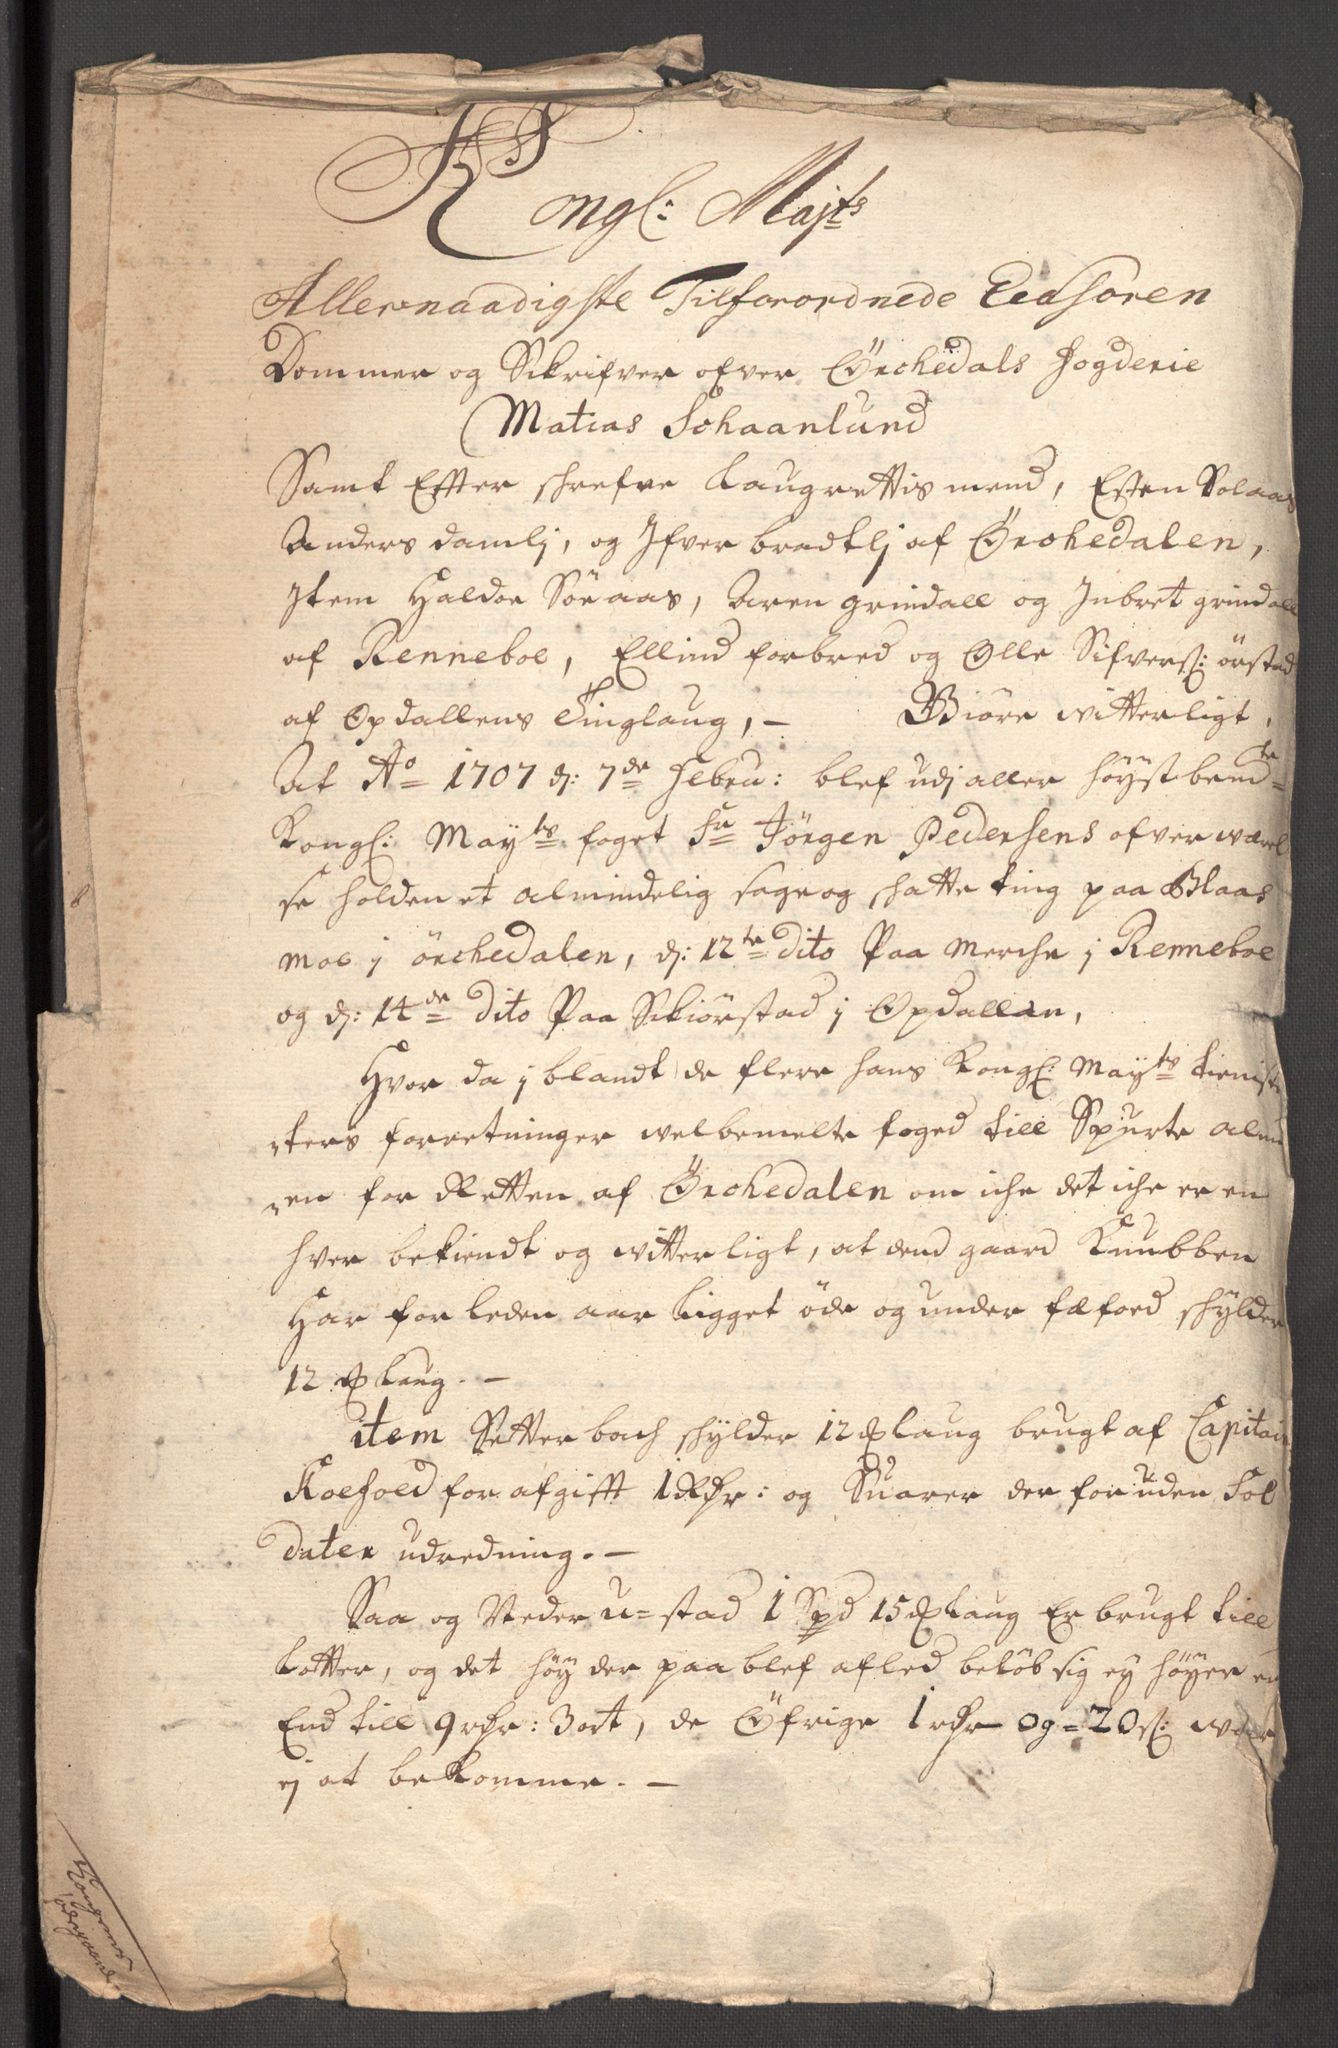 Kongl: Majts
Allernaadigste Tilforordnede Eedsoren
Dommer og Skrifver ofver Örchedals fogderie
Matias Schaanlund
Samt Effter schrefne Laugrettis mend, Esten Solaas
Anders damlj, og Ifver bradtlj af Örchedalen,
Item Haldor Söraas, Aren grindall og Inbret grindall
af Renneboe, Ellind forbred og Olle Sifversß: örstad
af Opdallens Tinglaug, – Giöre witterligt,
At Ao 1707 d: 7de Febru: blef udj aller höyst bemte
Kongl: Mayts foget Sr Jörgen Pedersens ofverwærel
se holden et almindelig sage og schatte ting paa Blaas
moe j örchedalen, d: 12te dito Paa Merche j Renneboe
og d: 14de dito Paa Skiörstad j Opdallen,
Hvor da j blandt de flere hans Kongl: Mayts tieniste
ters forretninger welbemelte foged till Spurte almu
en for Retten af Örchedalen om iche det iche er en
hver bekiendt og witterligt, at dend gaard Knubben
Har for leden aar ligget öde og under fæfoed schylder
12 ℔ Laug. –
item Setter bach schylder 12 ℔ laug brugt af Capitain
Kolfoed for afgifft 1 Rdr: og Suarer der foruden Sol
daten udredning. –
Saa og Neder u=stad 1 Spd 15 ℔ Laug Er brugt till
Lotter, og det höy der paa blef afled beløb sig ey höyer
End till 9 rdr: 3 ort, de Öfrige 1 rdr og= 20 ß: waar
ej at bekomme. –
Kongens
ödegaarde